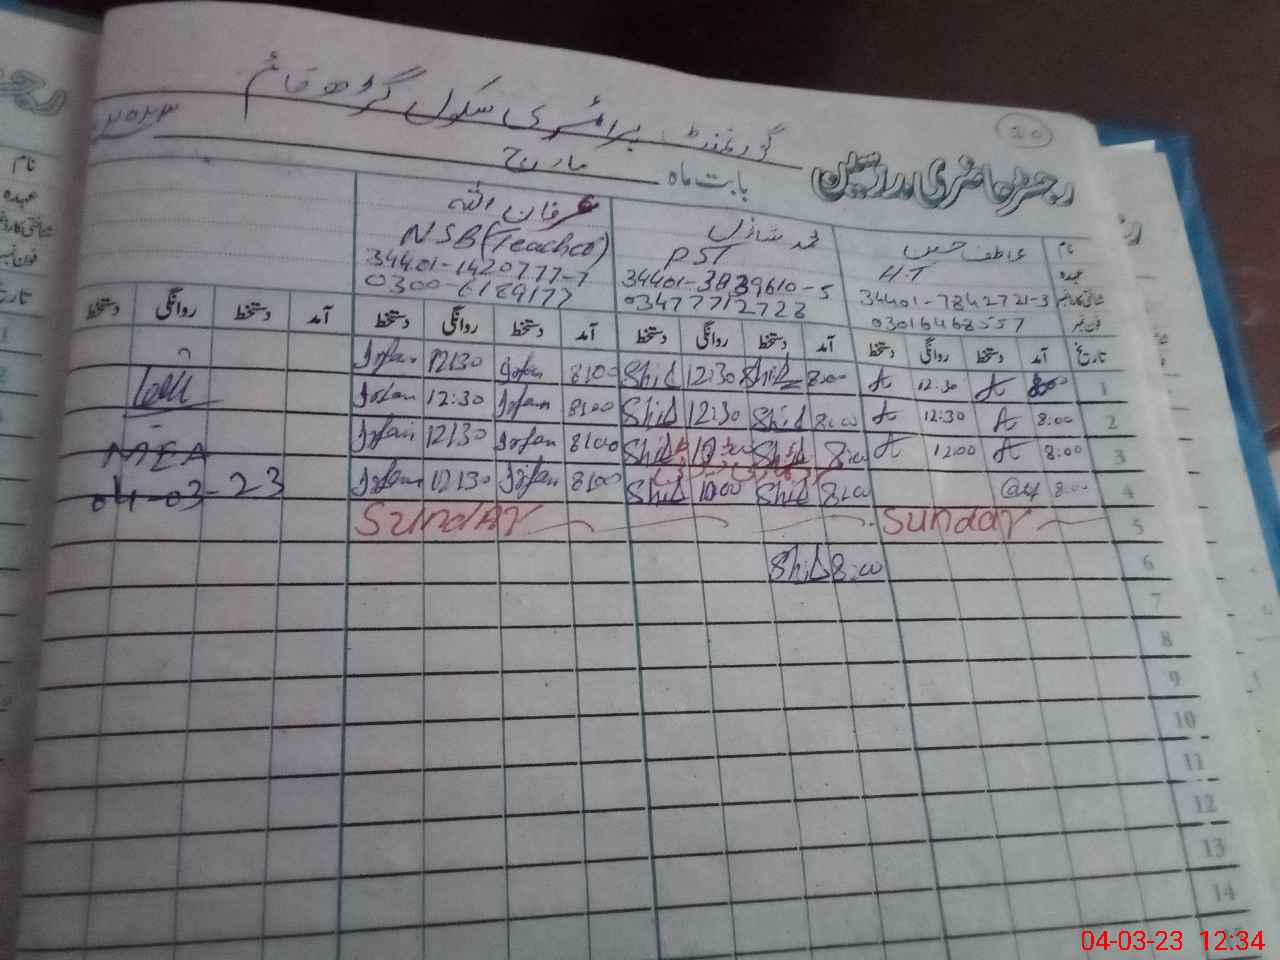 20
گورنمنٹ پرائمری سکول گڑھ قائم
۲۰۲۳
رجسٹر حاضری مدرسین بابت ماہ مارچ
نام عاطف حسین محمد شازل عرفان اللہ
عہدہ H.T PST NSB(Teacher)
34401-7842721-3 34401-3839610-5 34401-1420777-7
03016468557 03477712728 0300-6189177
تاریخ آمد دستخط روانگی دستخط آمد دستخط روانگی دستخط آمد دستخط روانگی دستخط آمد دستخط روانگی دستخط
1 8:00 A 12:30 A 8:00 Shid 12:30 Shid 8:00 Irfan 12:30 Irfan
2 8:00 A 12:30 A 8:00 Shid 12:30 Shid 8:00 Irfan 12:30 Irfan
3 8:00 A 12:00 A 8:00 Shid Shid 8:00 Irfan 12:30 Irfan
MEA
4 8:00 8:00 Shid 10:00 Shid 8:00 Irfan 12:30 Irfan
04-03-23
5 Sunday Sunday
6 8:00 Shid
7
8
9
10
11
12
13
14
نام
عہدہ
04-03-23 12:34